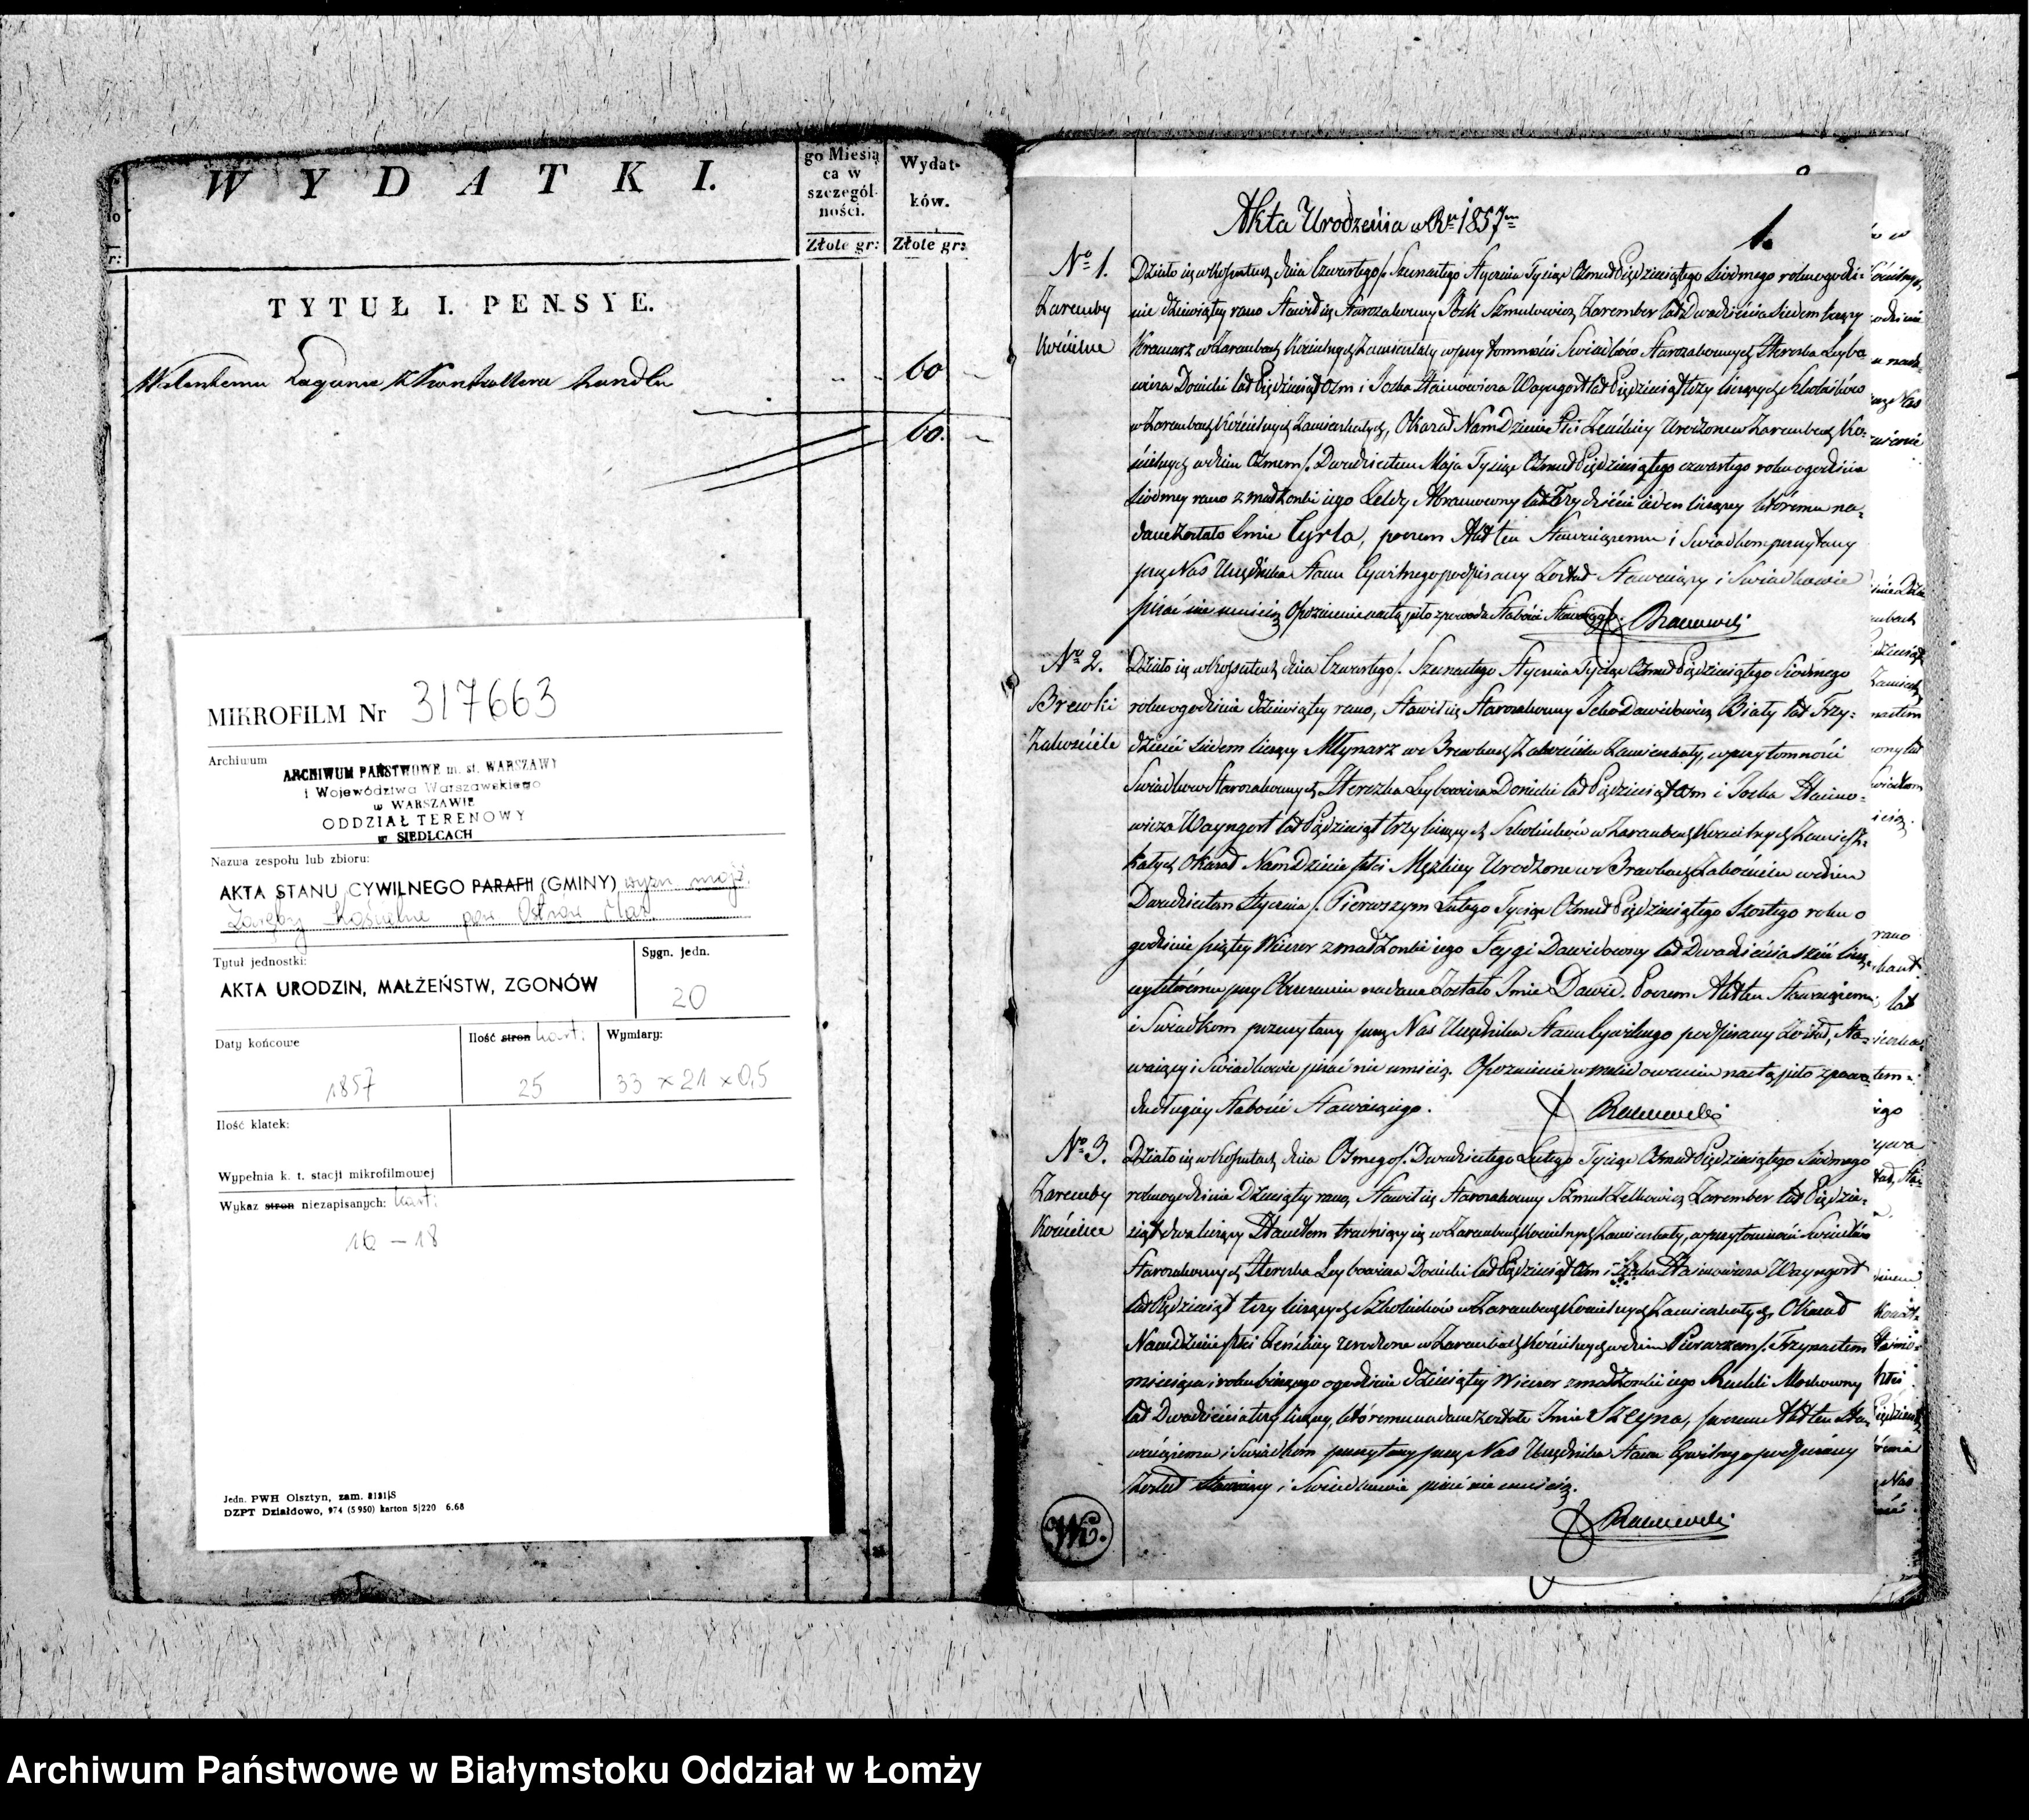 WYDATKI.
go Miesią
ca w
szczegól-
ności.
Złote gr:
Wydat-
ków.
Złote gr:
TYTUŁ I. PENSYE.
60
60.
MIKROFILM Nr 317663
Archiwum
ARCHIWUM PAŃSTWOWE m. st. WARSZAWY
i Województwa Warszawskiego
w WARSZAWIE
ODDZIAŁ TERENOWY
w SIEDLCACH
Nazwa zespołu lub zbioru:
AKTA STANU CYWILNEGO PARAFII (GMINY) wyzn. mojż.
Zaręby Kościelne pow. Ostrów Maz.
Tytuł jednostki:
AKTA URODZIN, MAŁŻEŃSTW, ZGONÓW
Sygn. jedn.
20
Daty końcowe
1857
Ilość stron kart:
25
Wymiary:
33 x 21 x 0,5
Ilość klatek:
Wypełnia k. t. stacji mikrofilmowej
Wykaz stron niezapisanych: kart:
16 – 18
Jedn. PWH Olsztyn, zam.
DZPT Działdowo, 974 (5950) karton 5|220 6.68
Akta Urodzenia w Rku 1857m
1.
No 1.
Zaremby
Kościelne
Działo się w Kossutach dnia Czwartego/. Szesnastego Stycznia Tysiąc Ośmset Piędziesiątego Siódmego roku o godzi-
nie dziewiątey rano Stawił się Starozakonny Josk Szmulowicz Zarember lat Dwadzieścia siedem liczący
Kramarz w Zarembach Kościelnych Zamieszkały w przytomności Swiadków Starozakonnych Herszka Leybo-
wicza Donicki lat Piędziesiąt ośm i Joska Haimowicza Wayngort lat Piędziesiąt trzy liczących Szkolników
w Zarembach Kościelnych Zamieszkałych, Okazał Nam Dziecie Płci Żeńskiey Urodzone w Zarembach Ko-
ścielnych w dniu Osmem/. Dwudziestem Maja Tysiąc Ośmset Piędziesiątego czwartego roku o godzinie
siódmey rano z małżonki iego Zeldy Abramowny lat Trzydzieści ieden liczący któremu na-
dane zostało Imie Cyrla, poczem Akt ten Stawaiącemu i Swiadkom przeczytany
przez Nas Urzędnika Stanu Cywilnego podpisany Został Stawaiący i Swiadkowie
pisać nie umieią Opoznienie nastąpiło z powodu słabości Stawaiącego.
No 2.
Brewki
Zakościele
Działo się w Kossutach dnia Czwartego/. Szesnastego Stycznia Tysiąc Ośmset Piędziesiątego Siódmego
roku o godzinie dziewiątey rano, Stawił się Starozakonny Icko Dawidowicz Biały lat Trzy-
dzieści siedem liczący Młynarz w Brewkach Zakościelu Zamieszkały, w przytomności
Swiadków Starozakonnych Herszka Leybowicza Donicki lat Piędziesiąt ośm i Joska Haimo-
wicza Wayngort lat Piędziesiąt trzy liczących Szkolników w Zarembach Kościelnych Zamiesz-
kałych Okazał Nam Dziecie płci Męzkiey Urodzone w Brewkach Zakościelu w dniu
Dwudziestem Stycznia/. Pierwszym Lutego Tysiąc Ośmset Piędziesiątego Szóstego roku o
godzinie piątey Wieczor z małżonki iego Feygi Dawidowny lat Dwadzieścia sześć licz-
ący któremu przy Obrzezaniu nadane Zostało Imie Dawid. Poczem Akt ten Stawaiącemu
i Swiadkom przeczytany przez Nas Urzędnika Stanu Cywilnego podpisany Został, Sta-
waiący i Swiadkowie pisać nie umieią. Opoznienie w meldowaniu nastąpiło z powo-
du długiey słabości Stawaiącego.
No 3.
Zaremby
Kościelne
Działo się w Kossutach dnia Osmego/. Dwudziestego Lutego Tysiąc Ośmset Piędziesiątego Siódmego
roku o godzinie Dziesiątey rano, Stawił się Starozakonny Szmul Zelkowicz Zarember lat Piędzie-
siąt dwa liczący Handlem trudniący się w Zarembach Kościelnych Zamieszkały, w przytomności Swiadków
Starozakonnych Herszka Leybowicza Donicki lat Piędziesiąt ośm i Joska Haimowicza Wayngort
lat Piędziesiąt trzy liczących Szkolników w Zarembach Kościelnych Zamieszkałych, Okazał
Nam Dziecie płci Żeńskiey urodzone w Zarembach Kościelnych w dniu Pierwszem/. Trzynastem
miesiąca i roku bieżącego o godzinie dziesiątey Wieczor z małżonki iego Ruchli Moskowny
lat Dwadzieścia trzy liczący, któremu nadane zostało Imie Szeyna, poczem Akt ten Sta-
waiącemu i Swiadkom przeczytany przez Nas Urzędnika Stanu Cywilnego podpisany
Został Stawaiący i Swiadkowie pisać nie umieią.
Archiwum Państwowe w Białymstoku Oddział w Łomży